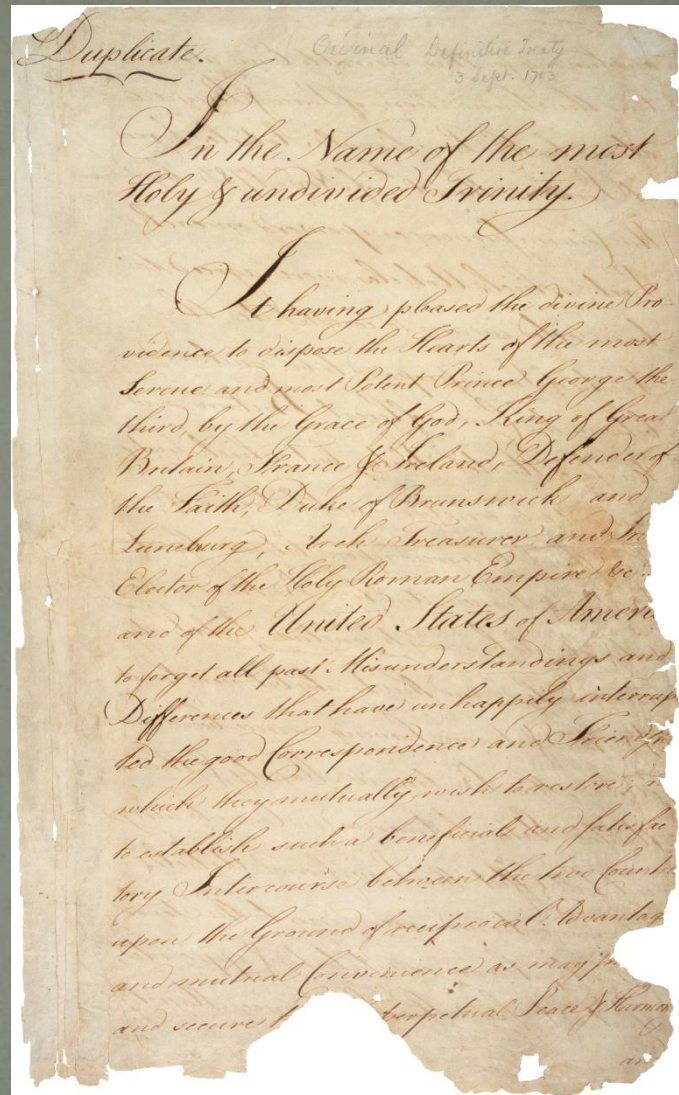 Duplicate.
Original Definitive Treaty
3 Sept. 1783
In the Name of the most
Holy & undivided Trinity.
It having pleased the divine Pro-
vidence to dispose the Hearts of the most
Serene and most Potent Prince George the
third, by the Grace of God, King of Great
Britain, France & Ireland, Defender of
the Faith, Duke of Brunswick and
Luneburg, Arch Treasurer and
Elector of the Holy Roman Empire &c.
and of the United States of Ameri
to forget all past Misunderstandings and
Differences that have unhappily interrup
ted the good Correspondence and Friendsh
which they mutually wish to restore;
to establish such a beneficial and satisfac
tory Intercourse between the two Countr
upon the Ground of reciprocal Advantag
and mutual Convenience as may
and secure perpetual Peace & Harmony
an